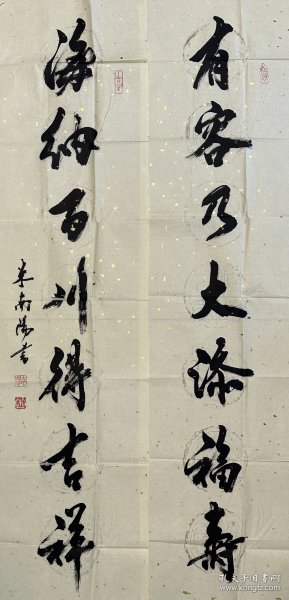 有容乃大添福寿
海纳百川得吉祥
米南阳书
孔夫子旧书网